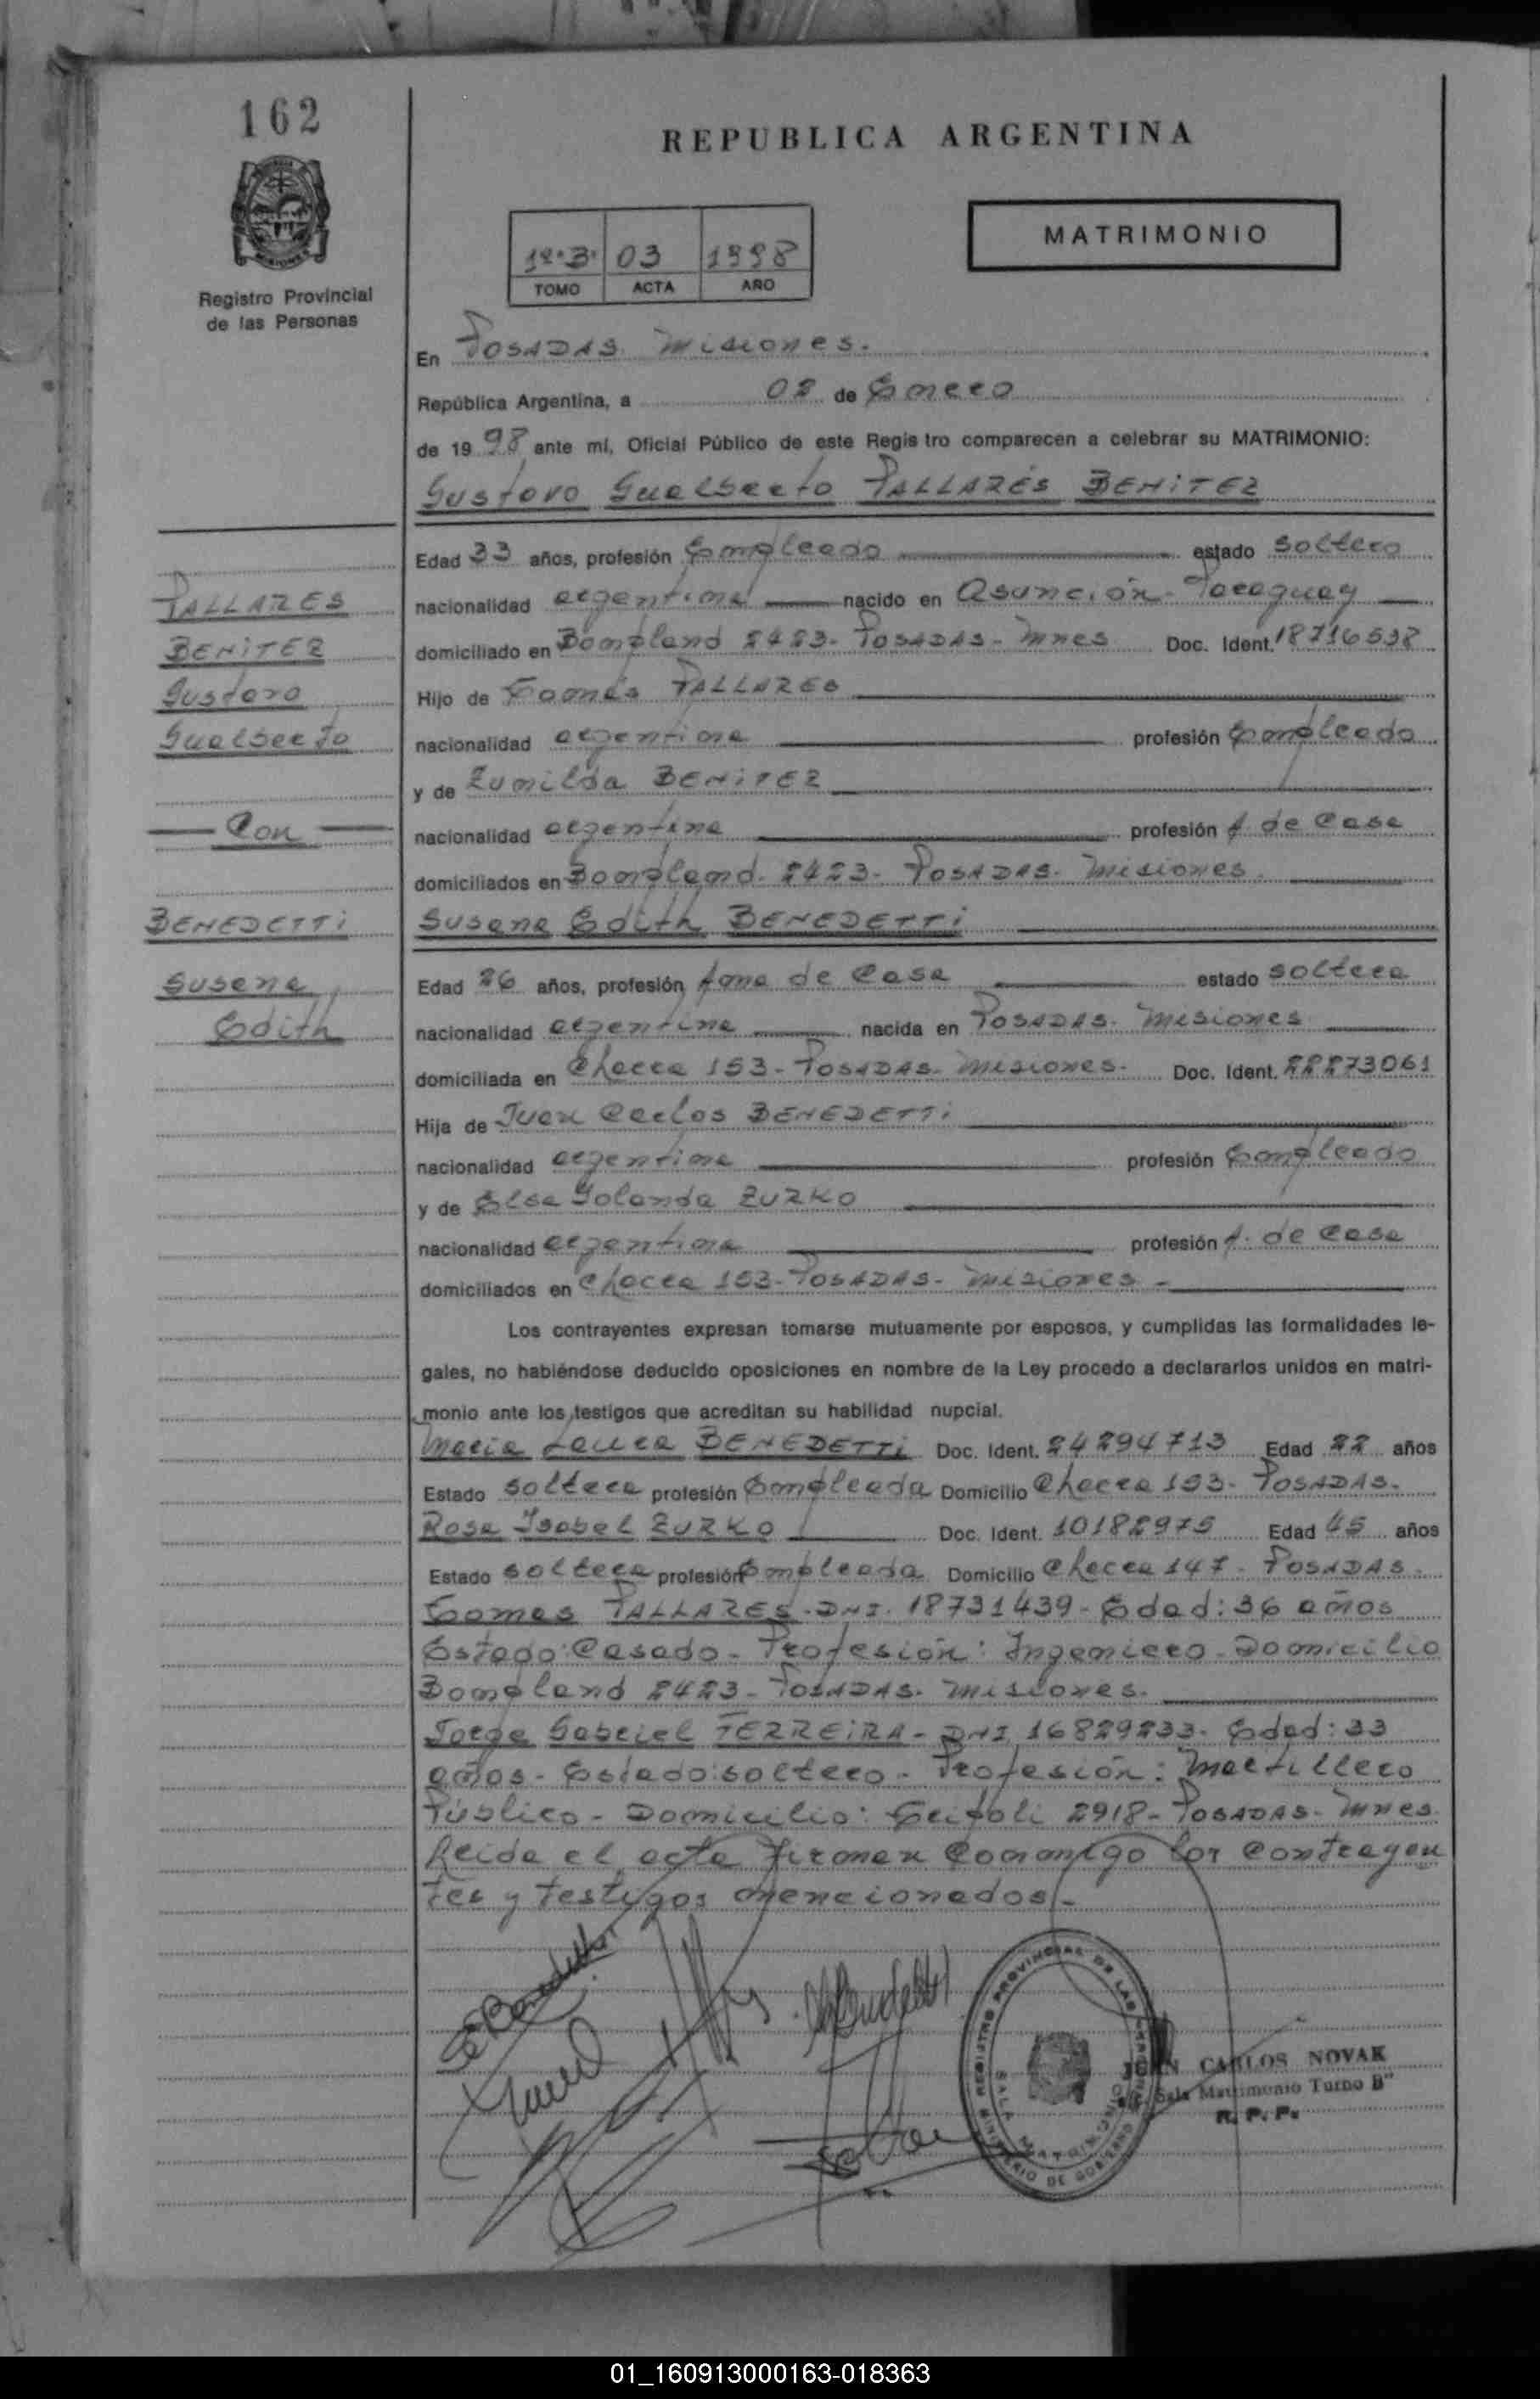 162
REPUBLICA ARGENTINA
MATRIMONIO
1º.3. 03 1998
TOMO ACTA AÑO
Registro Provincial
de las Personas
En POSADAS. Misiones.
República Argentina, a 02 de Enero
de 19 98 ante mí, Oficial Público de este Registro comparecen a celebrar su MATRIMONIO:
Gustavo Gualberto PALLARÉS BENITEZ
Edad 33 años, profesión Empleado estado soltero
PALLARES
nacionalidad argentina nacido en Asunción - Paraguay
BENITEZ
domiciliado en Bompland 2423 - POSADAS - Mnes Doc. Ident. 18716538
Gustavo
Hijo de PALLARES
Gualberto
nacionalidad argentina profesión Empleado
y de Zunilda BENITEZ
Con
nacionalidad argentina profesión A. de Casa
domiciliados en Bompland. 2423 - POSADAS. Misiones.
BENEDETTI
Susana Edith BENEDETTI
Susana
Edad 26 años, profesión Ama de Casa estado soltera
Edith
nacionalidad argentina nacida en POSADAS. Misiones
domiciliada en Chacra 153 - POSADAS. Misiones. Doc. Ident. 22273061
Hija de Juan Carlos BENEDETTI
nacionalidad argentina profesión Empleado
y de Elsa Yolanda ZURKO
nacionalidad argentina profesión A. de Casa
domiciliados en Chacra 153 - POSADAS - Misiones -
Los contrayentes expresan tomarse mutuamente por esposos, y cumplidas las formalidades le-
gales, no habiéndose deducido oposiciones en nombre de la Ley procedo a declararlos unidos en matri-
monio ante los testigos que acreditan su habilidad nupcial.
Maria Laura BENEDETTI Doc. Ident. 24294713 Edad 22 años
Estado soltera profesión Empleada Domicilio Chacra 153 - POSADAS.
Rosa Isabel ZURKO Doc. Ident. 10182975 Edad 45 años
Estado soltera profesión Empleada Domicilio Chacra 147 - POSADAS.
PALLARES - DNI. 18731439 - Edad: 36 años
Estado: Casado - Profesión: Ingeniero - Domicilio
Bompland 2423 - POSADAS. Misiones.
Jorge Gabriel FERREIRA - DNI 16829233 - Edad: 33
años - Estado: soltero - Profesión: Martillero
Público - Domicilio: 2918 - POSADAS - Mnes
Leida el acta firman Conmigo los Contrayen
tes y testigos mencionados -
REGISTRO PROVINCIAL DE LAS PERSONAS
SALA MATRIMONIO
MINISTERIO DE GOBIERNO
JUAN CARLOS NOVAK
Sala Matrimonio Turno B"
R. P. P.
01_160913000163-018363